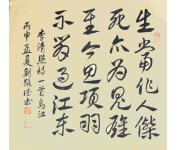 生當作人傑
死亦為鬼雄
至今思項羽
不肯過江東
李清照詩一首烏江
丙申孟夏劉顯德書